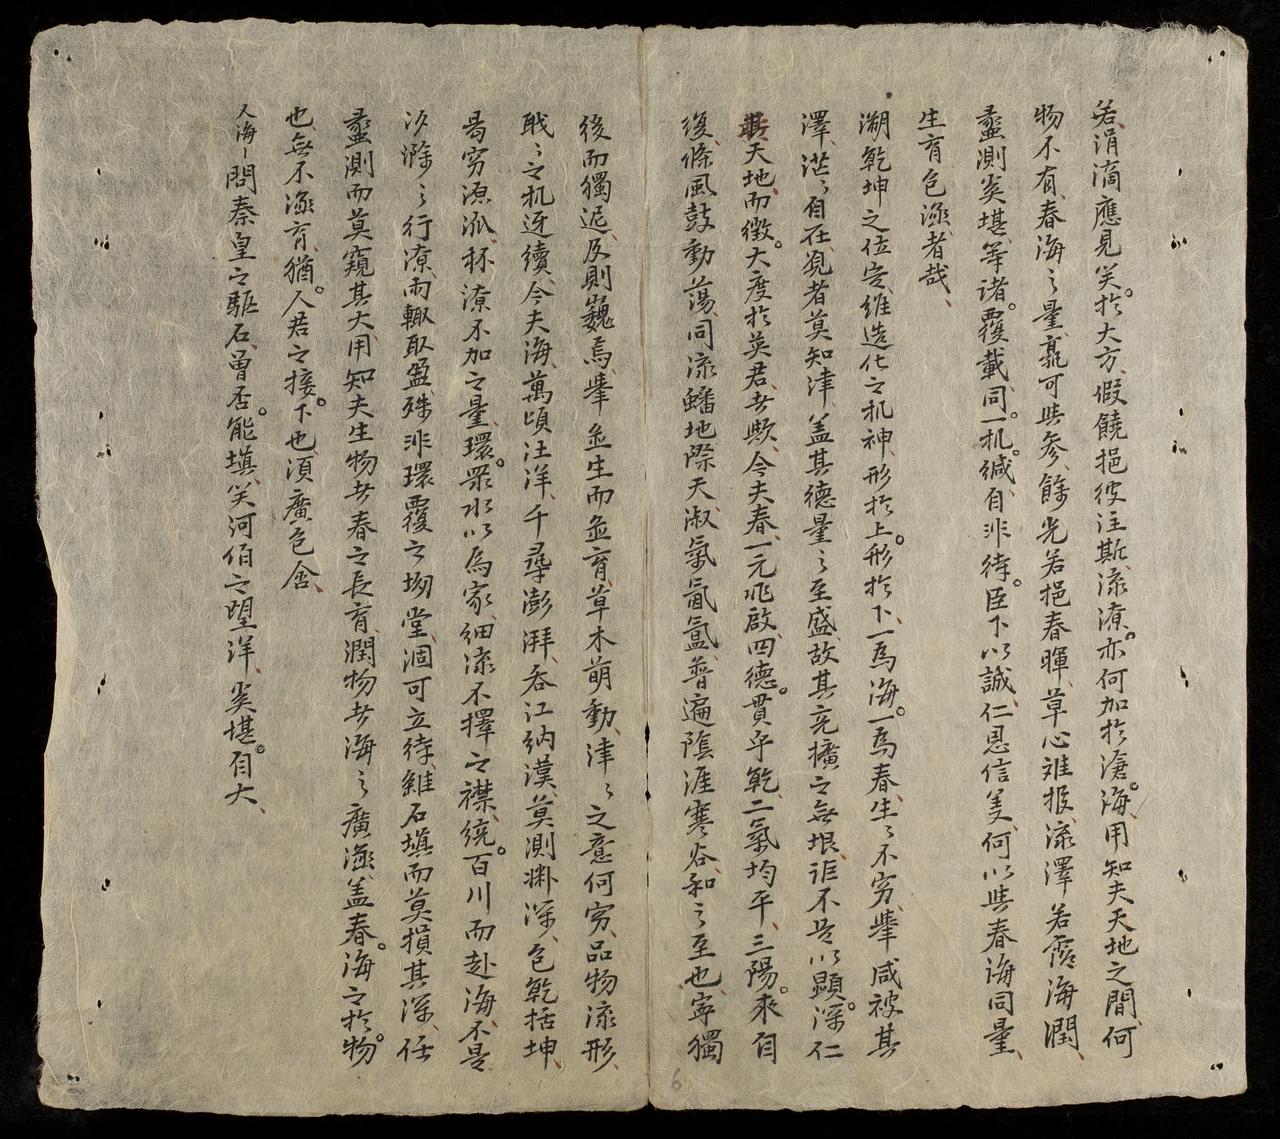 若涓滴應見笑於大方假饒挹彼注斯流潦亦何加於滄海用知夫天地之間何
物不有春海之量竟可與參餘光若挹春暉草心难报流澤若霑海潤
蠡測奚堪等諸覆載同一机緘自非待臣下以誠仁恩信美何以與春海同量
生育包涵者哉
溯乾坤之位定維造化之机神形於上形於下一為海一為春生々不穷举咸被其
澤茫々自在覌者莫知津盖其德量之至盛故其充擴之無垠詎不足以顯深仁
其天地而徵大度於英君者歟今夫春一元兆啟四德貫乎乾二氣均平三陽來自
復條風鼓動蕩同流蟠地際天淑氣氤氳普遍隂涯寒谷和之至也寧獨
後而獨泥反則巍焉举並生而並育草木萌動津々之意何穷品物流形
戢々之机迓續今夫海萬頃汪洋千尋澎湃吞江纳漢莫測渊深包乾括坤
曷穷源派杯潦不加之量環眾水以為家細流不擇之襟统百川而赴海不是
汐滌々行潦雨輙取盈殊非環覆之坳堂涸可立待雖石填而莫損其深任
蠡測而莫窺其大用知夫生物者春之長育潤物者海之廣涵盖春海之於物
也無不涵育猶人君之接下也須廣包含
又海一問秦皇之驅石曾否能填笑河伯之望洋奚堪自大
6